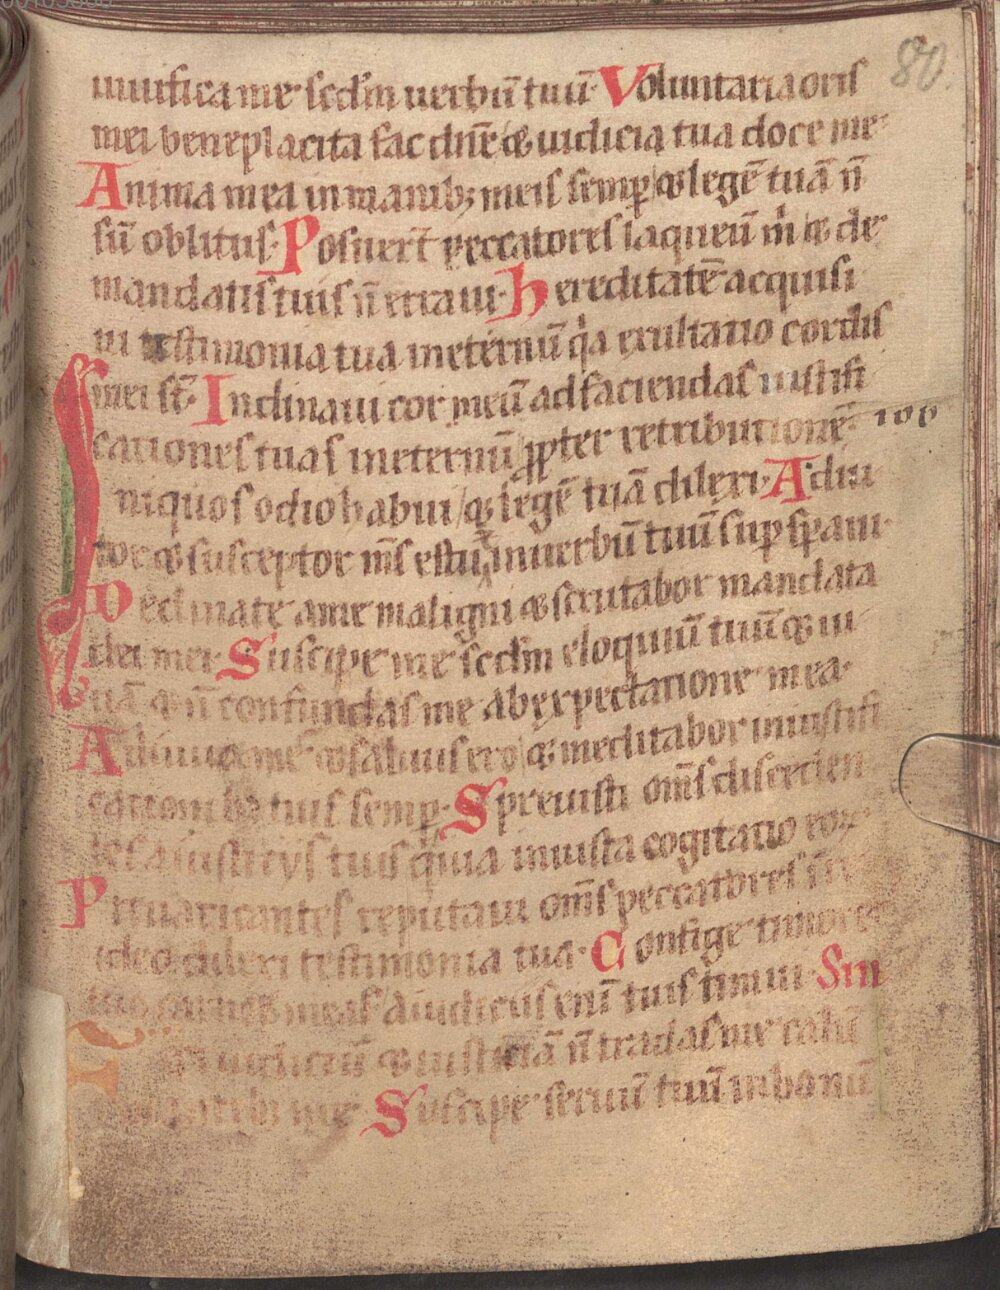 80.
uiuifica me scdm uerbū tuū. Voluntaria oris
mei beneplacita fac dn̄e & iudicia tua doce me.
Anima mea in manib; meis semp & legē tuā n̄
sū oblitus. Posuert̄ peccatores laqueū m̄ & de
mandatis tuis n̄ erraui. Hereditatē acquisi
ui testimonia tua ineternū q̄a exultatio cordis
mei st̄. Inclinaui cor meū ad faciendas iustifi
cationes tuas ineternū ꝓpter retributionē.
Iniquos odio habui & legē tuā dilexi. Adiu
tor & susceptor m̄s es tu & inuerbū tuū sup spaui.
Declinate a me maligni & scrutabor mandata
dei mei. Suscipe me scdm eloquiū tuū & ui
uā & n̄ confundas me ab expectatione mea.
Adiuua me & saluus ero & meditabor iniustifi
cationib; tuis semp. Spreuisti om̄s disceden
tes a iusticijs tuis quia iniusta cogitatio eor
Preuaricantes reputaui om̄s peccatores
ideo dilexi testimonia tua. Confige timore
tuo carnes meas a iudiciis enī tuis timui.
iudiciū & iusticiā n̄ tradas me calū
me. Suscipe seruū tuū in bonū